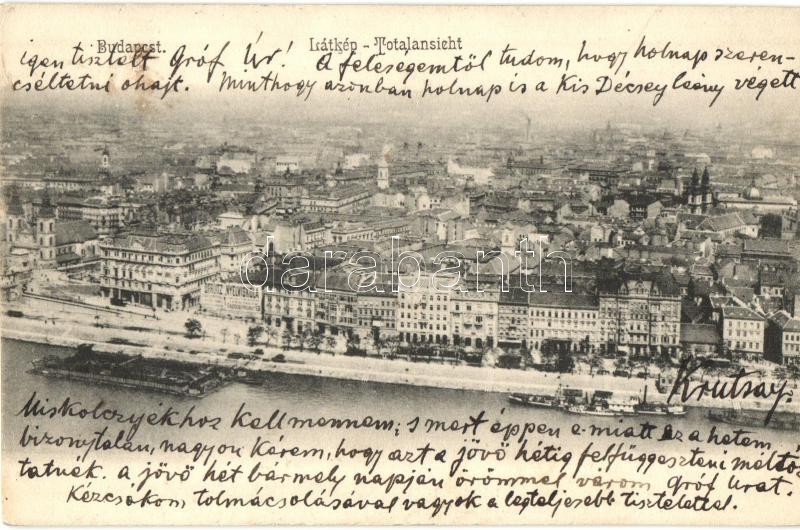 Budapest. Látkép - Totalansicht
igen tisztelt Gróf Úr! A feleségemtöl tudom, hogy holnap szeren-
cséltetni ohajt. Minthogy azonban holnap is a Kis Décsey leány végett
darabanth
Krutsay
Miskolczyékhoz kell mennem; s mert éppen e miatt ez a hetem
bizonytalan, nagyon kérem, hogy azt a jövö hétig felfüggeszteni méltóz-
tatnék. a jövö hét bármely napján örömmel várom gróf Urat.
Kézcsókom tolmácsolásával vagyok a legteljesebb tisztelettel.